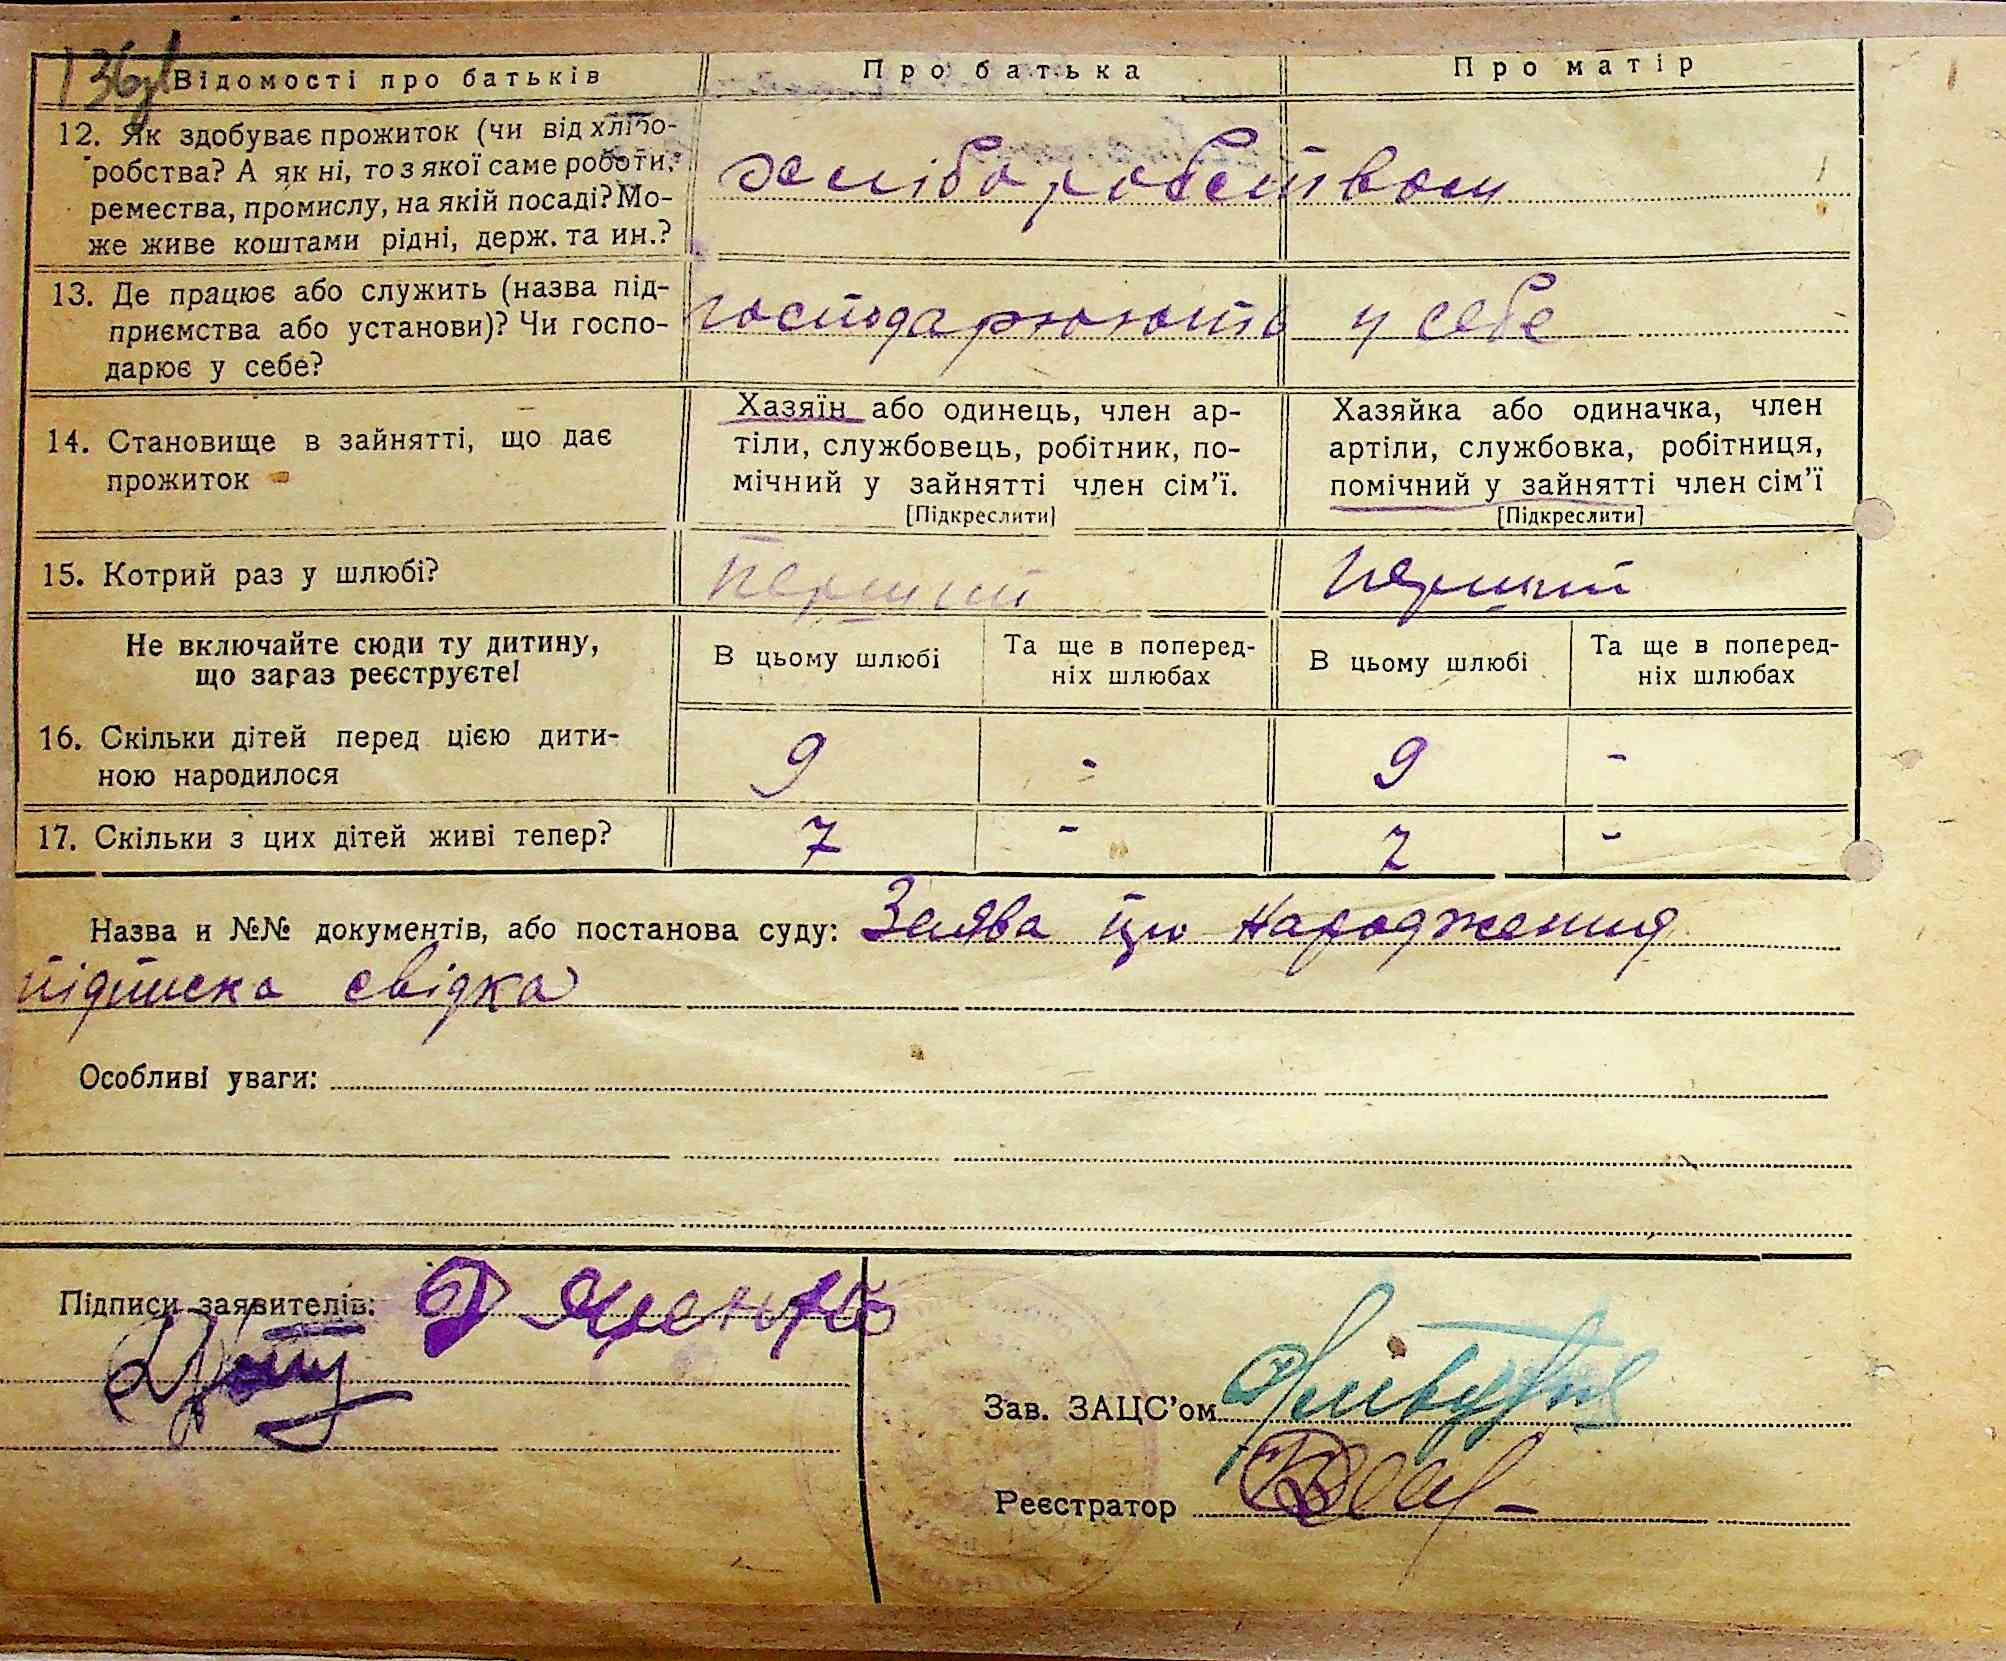 Відомості про батьків Про батька Про матір
12. Як здобуває прожиток (чи від хлібо-
робства? А як ні, то з якої саме роботи,
ремества, промислу, на якій посаді? Мо-
же живе коштами рідні, держ. та ин.?
хліборобством
13. Де працює або служить (назва під-
приємства або установи)? Чи госпо-
дарює у себе?
господарюють у себе
14. Становище в зайнятті, що дає
прожиток
Хазяїн або одинець, член ар-
тіли, службовець, робітник, по-
мічний у зайнятті член сім'ї.
[Підкреслити]
Хазяйка або одиначка, член
артіли, службовка, робітниця,
помічний у зайнятті член сім'ї
[Підкреслити]
15. Котрий раз у шлюбі? перший перший
Не включайте сюди ту дитину,
що зараз реєструєте!
В цьому шлюбі
Та ще в поперед-
ніх шлюбах
В цьому шлюбі
Та ще в поперед-
ніх шлюбах
16. Скільки дітей перед цією дити-
ною народилося
9 - 9 -
17. Скільки з цих дітей живі тепер? 7 - 7 -
Назва и №№ документів, або постанова суду: Заява про народження
підписка свідка
Особливі уваги:
Підписи заявителів:
Зав. ЗАЦС'ом
Реєстратор